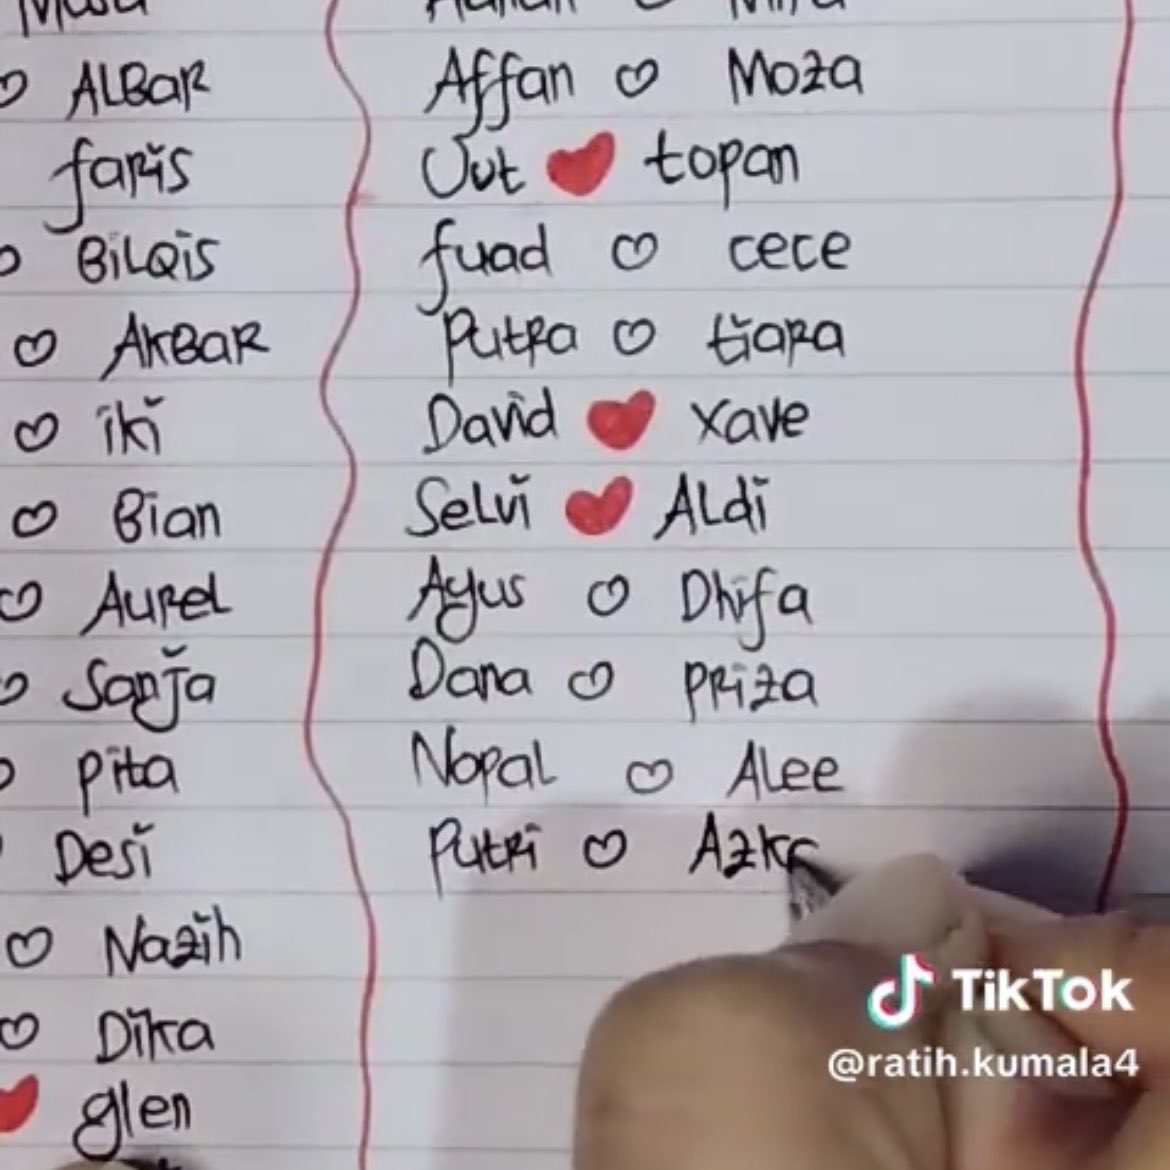 ALBAR
faris
BiLQis
AKBAR
iki
Bian
AuReL
Sanja
pita
Desi
Nazih
Dika
glen
Affan ♡ Moza
Uut ❤ topan
fuad ♡ cece
PutRa ♡ tiaRa
David ❤ Xave
SeLvi ❤ ALdi
Ayus ♡ Dhifa
Dana ♡ PRiza
NopaL ♡ ALee
PutRi ♡
TikTok
@ratih.kumala4